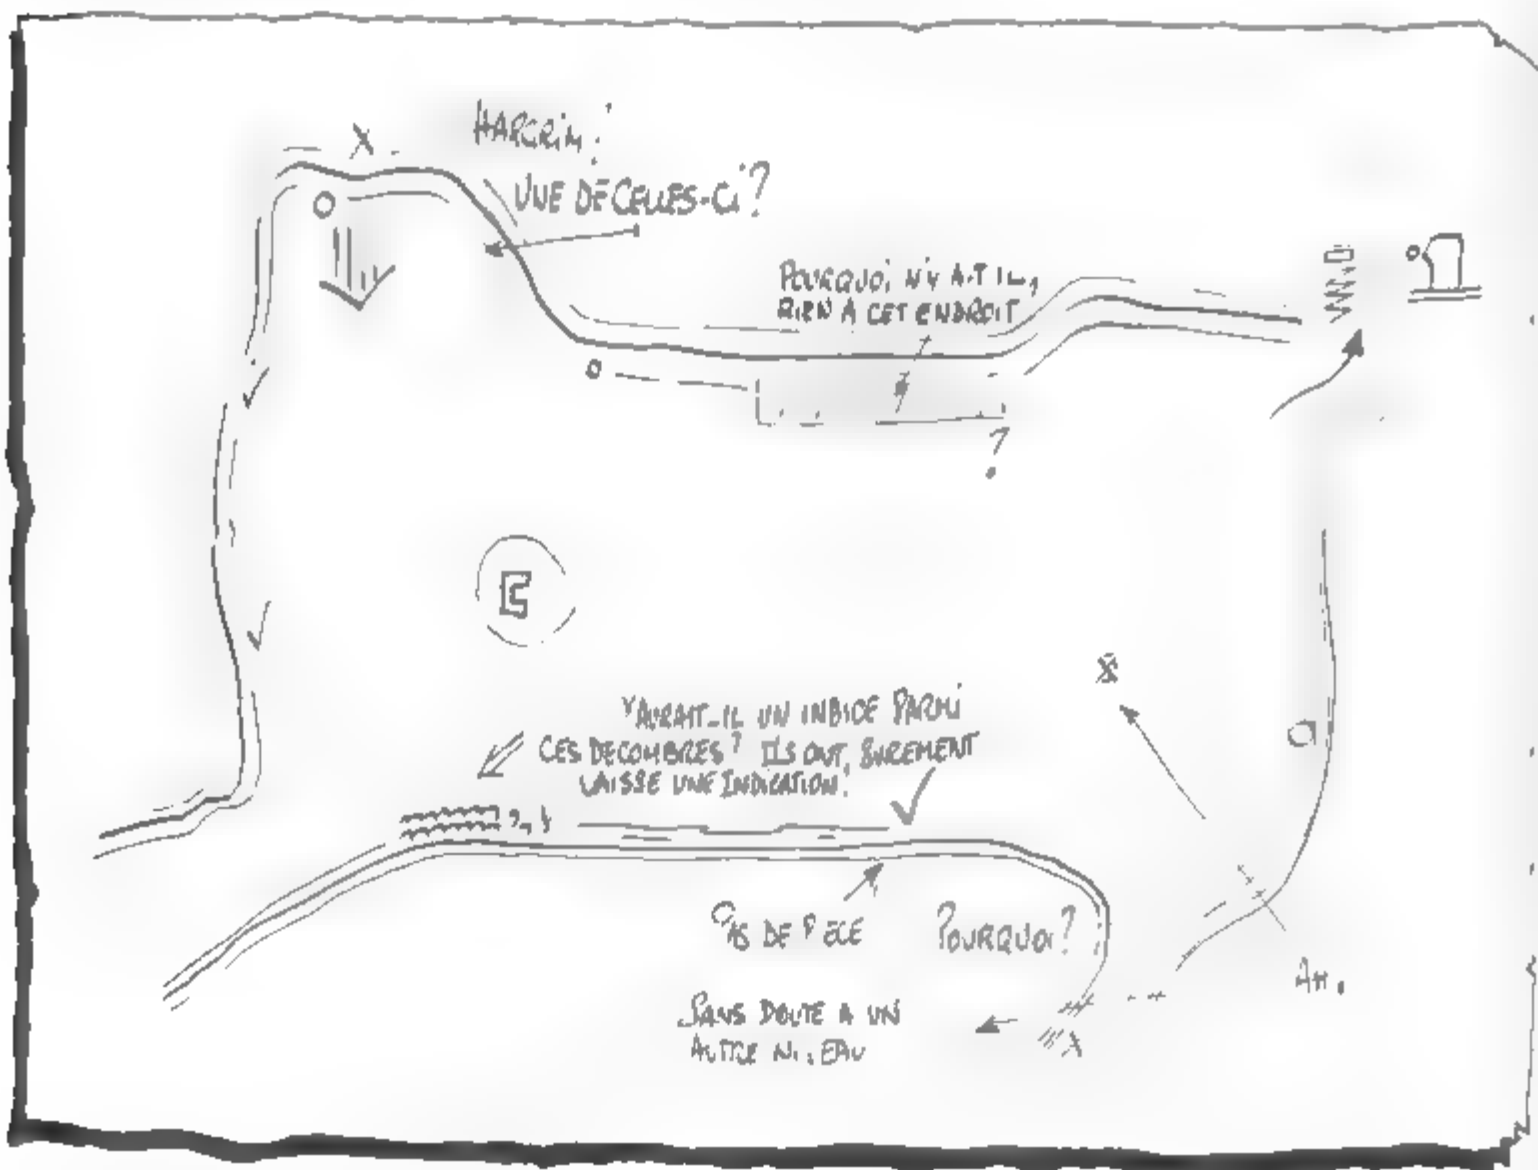 HARGRIM!
UNE DE CELLES-CI?
POURQUOI N'Y A-T IL,
RIEN A CET ENDROIT
?
Y AURAIT-IL UN INDICE PARMI
CES DECOMBRES? ILS ONT, SUREMENT
LAISSE UNE INDICATION!
PAS DE
POURQUOI?
SANS DOUTE A UN
AUTRE NIVEAU